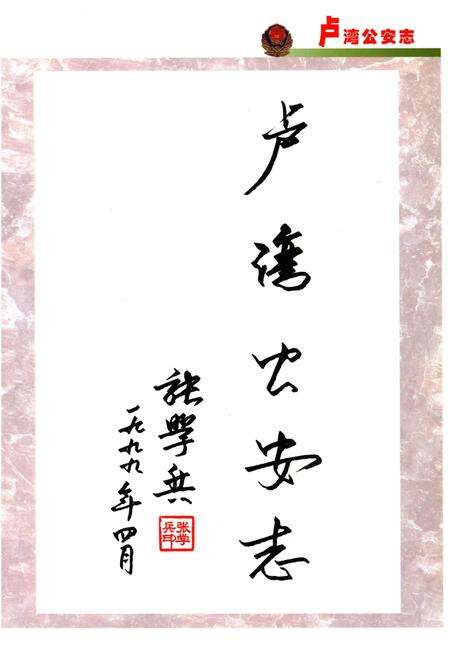 卢湾公安志
卢湾公安志
张學兵
一九九九年四月
张学
兵印